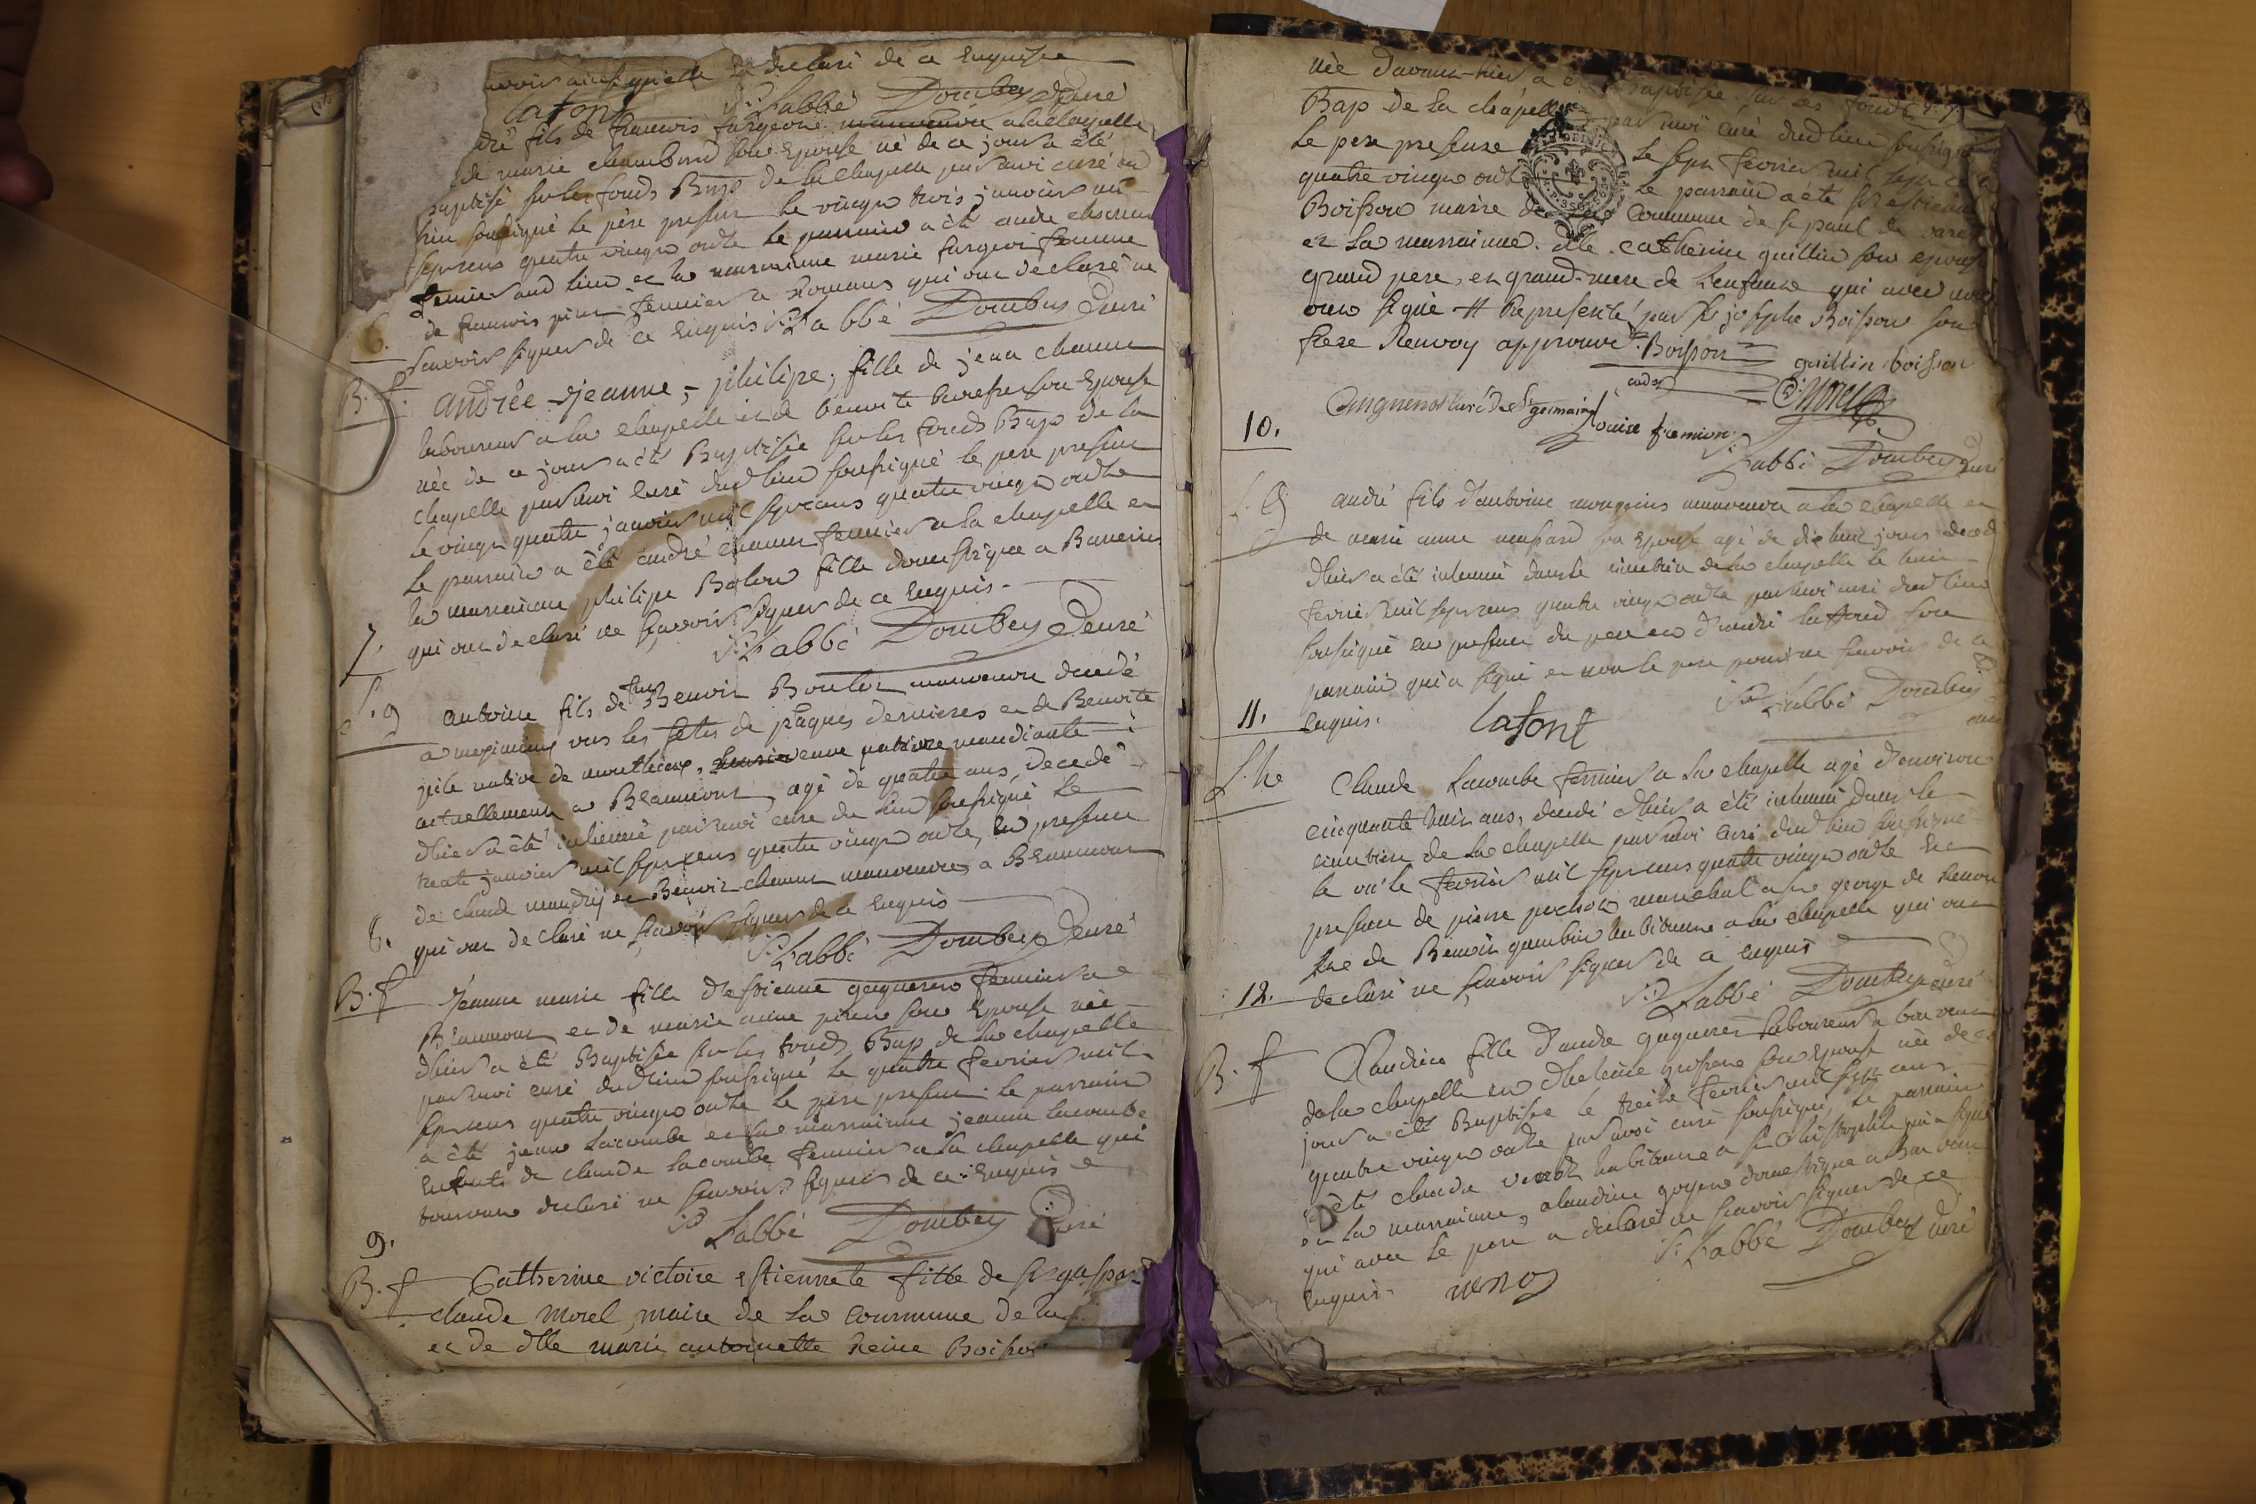 qu'elle a declaré de ce Enquise
Lafont S.r Labbé Dombey Curé
dré fils de francois fargeon manoeuvre a la chapelle
de marie chambard son Epouse né de ce jour a été
baptisé sur les fonds Bap de la chapelle par moi curé du
lieu sousigné le père present le vingt trois janvier mil
septcens quatre vingt onze le parrain a été
fermier aud lieu et la marraine marie fargeon femme
de francois fermier a Romans qui ont declaré ne
6.
scavoir signer de ce Enquis S.r Labbé Dombey Curé
B. f. andrée - jeanne - philipe, fille de jean chanut
laboureur a la chapelle et de benoite son Epouse
née de ce jour a été Baptisée sur les fonds Bap de la
chapelle par moi Curé dud lieu sousigné le pere present
le vingt quatre janvier mil septcens quatre vingt onze
le parrain a été andré chanut fermier a la chapelle et
la marraine philipe Bolon fille domestique a Baneins
qui ont declaré ne scavoir signer de ce Enquis -
7. S.r Labbé Dombey Curé
S. g antoine fils de feu Benoit Boulon manoeuvre decedé
a meximieux vers les fêtes de pâques dernieres et de Benoite
pile native de monthieux, mandiante
actuellement a Beaumont, agé de quatre ans, decedé
d'hier a été inhumé par moi curé du lieu sousigné le
trente janvier mil septcens quatre vingt onze, en presence
de claude et Benoit chanut manoeuvres a Beaumont
8.
qui ont declaré ne scavoir signer de ce Enquis
S.r Labbé Dombey Curé
B. f Jeanne marie fille d'estienne guguenet fermier a
Beaumont et de marie anne son Epouse née
d'hier a été Baptisée sur les fonds Bap de la chapelle
par moi curé dud lieu sousigné le quatre fevrier mil
septcens quatre vingt onze le pere present le parrain
a été jean Lacombe et la marraine jeanne lacombe
Enfants de claude Lacombe fermier a la chapelle qui
tous ont declaré ne scavoir signer de ce Enquis
S.r Labbé Dombey Curé
9.
B. f Catherine victoire estiennete fille de S.r gaspard
claude Morel, maire de la commune de la
et de dlle marie antoinette Reine Boisson
née d'avant-hier a été baptisée sur les fonds
Bap de la chapelle par moi curé dud lieu sousigné
le pere present le sept fevrier mil sept cens
quatre vingt onze le parrain a été
Boisson maire de la Commune de st paul de varax
et la marraine dlle Catherine guillin son epouse
grand pere, et grand-mere de l'enfant qui avec nous
ont signé # Representé par S.r josephe Boisson son
frere Renvoy approuvé. Boisson guillin boisson
cadet C. Morel
Curé de St germain Louise fremion
10. S.r Labbé Dombey Curé
S. G andré fils d'antoine manoeuvre a la chapelle et
de marie anne son Epouse agé de dix huit jours decedé
d'hier a été inhumé dans le cimetiere de la chapelle le huit
fevrier mil septcens quatre vingt onze par moi curé dud lieu
sousigné en presence du pere et d'andré laffond son
parrain qui a signé et non le pere pour ne scavoir de ce
enquis. Lafont S.r Labbé Dombey
11. curé
S. h Claude Lacombe fermier a la chapelle agé d'environ
cinquante huit ans, decedé d'hier a été inhumé dans le
cimetiere de la chapelle par moi Curé dud lieu sousigné
le onze fevrier mil septcens quatre vingt onze En
presence de pierre pochon marechal a st george de Renon
et de Benoit gambin habitant a la chapelle qui ont
declaré ne scavoir signer de ce enquis
12. S.r Labbé Dombey curé
B. f Claudine fille d'andré guguenet laboureur a
de la chapelle et d'helene son Epouse née de ce
jour a été Baptisée le treize fevrier mil sept cens
quatre vingt onze par moi curé sousigné, le parrain
a été claude habitant a st Christophle qui a signé
et la marraine, claudine goyon domestique a
qui avec le pere a declaré ne scavoir signer de ce
Enquis. S.r Labbé Dombey Curé